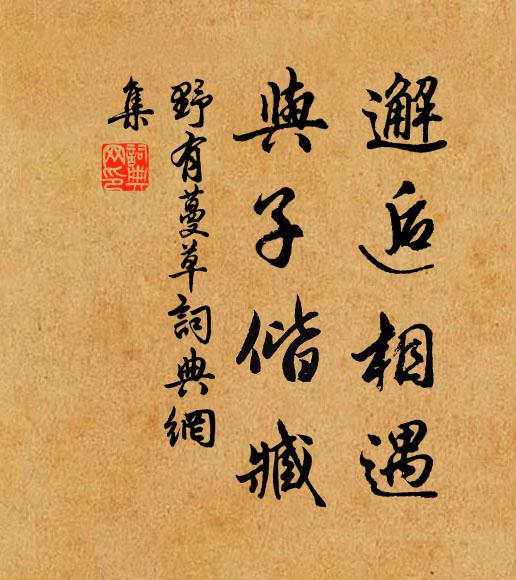 邂逅相遇
與子偕臧
野有蔓草詞典網
集
詞典
网印